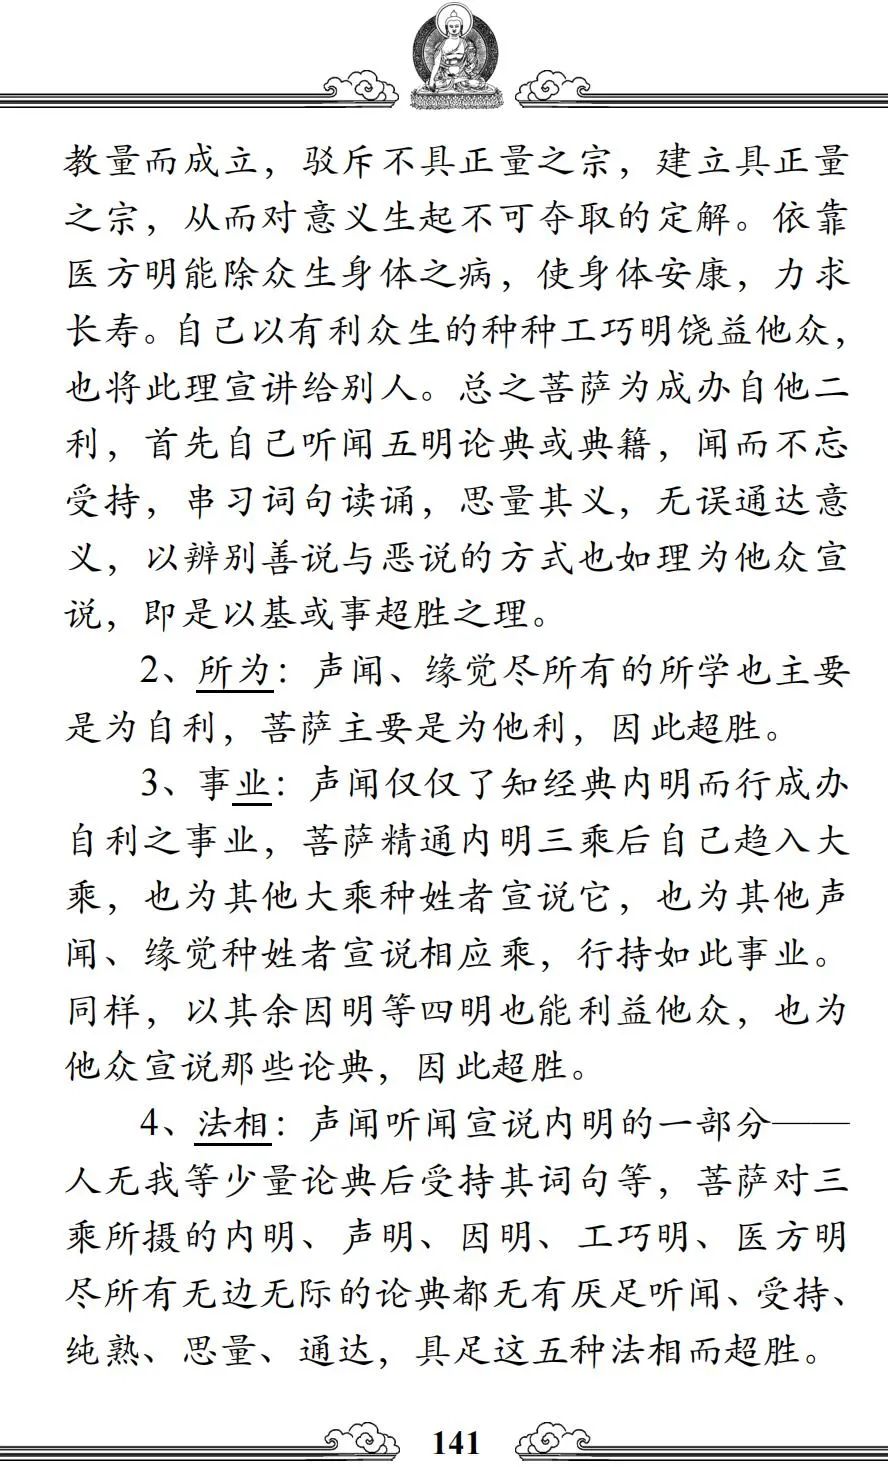 教量而成立，驳斥不具正量之宗，建立具正量
之宗，从而对意义生起不可夺取的定解。依靠
医方明能除众生身体之病，使身体安康，力求
长寿。自己以有利众生的种种工巧明饶益他众，
也将此理宣讲给别人。总之菩萨为成办自他二
利，首先自己听闻五明论典或典籍，闻而不忘
受持，串习词句读诵，思量其义，无误通达意
义，以辨别善说与恶说的方式也如理为他众宣
说，即是以基或事超胜之理。
2、所为：声闻、缘觉尽所有的所学也主要
是为自利，菩萨主要是为他利，因此超胜。
3、事业：声闻仅仅了知经典内明而行成办
自利之事业，菩萨精通内明三乘后自己趋入大
乘，也为其他大乘种姓者宣说它，也为其他声
闻、缘觉种姓者宣说相应乘，行持如此事业。
同样，以其余因明等四明也能利益他众，也为
他众宣说那些论典，因此超胜。
4、法相：声闻听闻宣说内明的一部分——
人无我等少量论典后受持其词句等，菩萨对三
乘所摄的内明、声明、因明、工巧明、医方明
尽所有无边无际的论典都无有厌足听闻、受持、
纯熟、思量、通达，具足这五种法相而超胜。
141